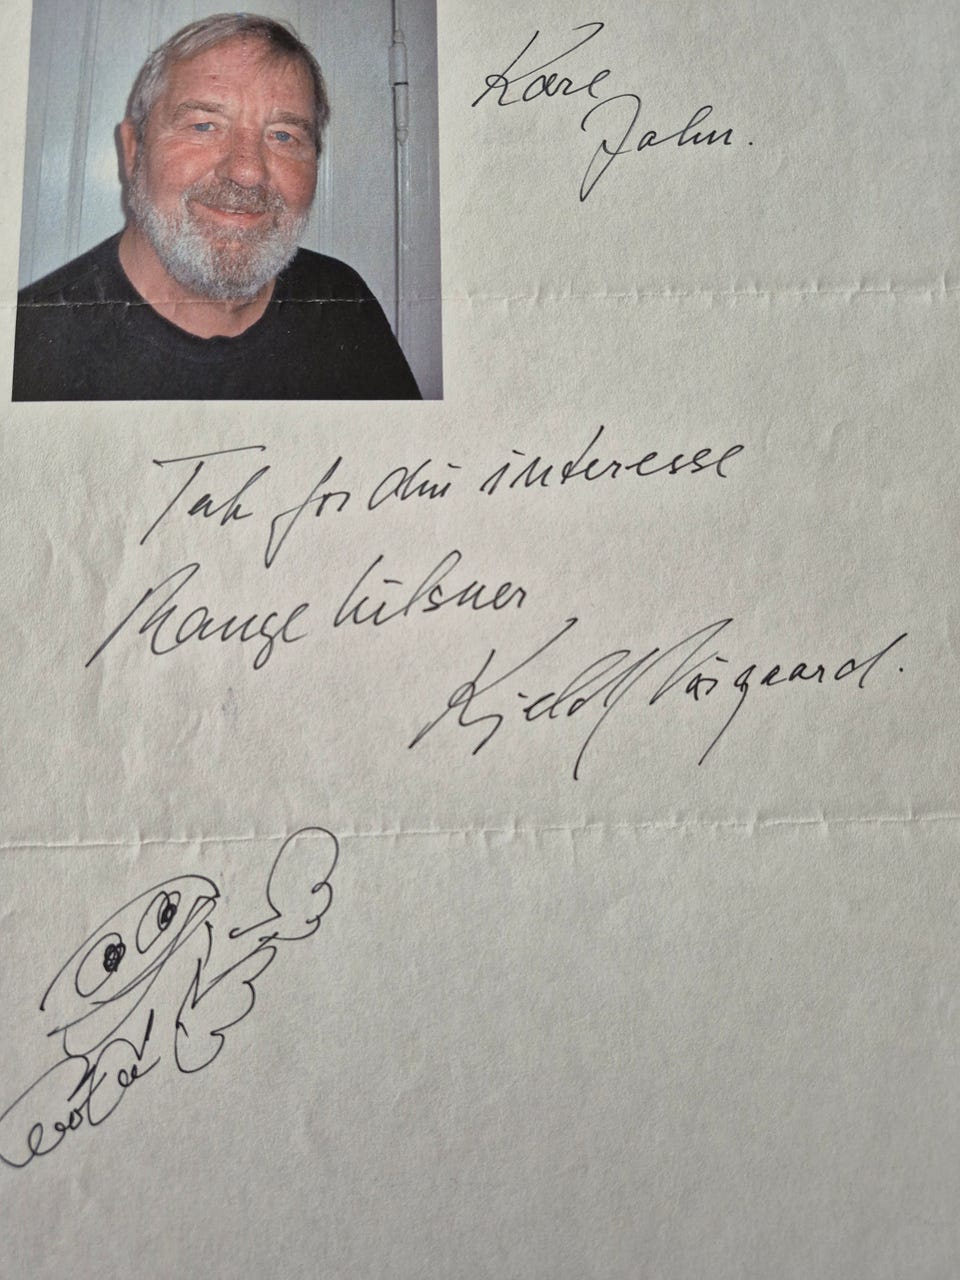 Kære
John.
Tak for din interesse
Mange hilsner
Kjeld Nørgaard.